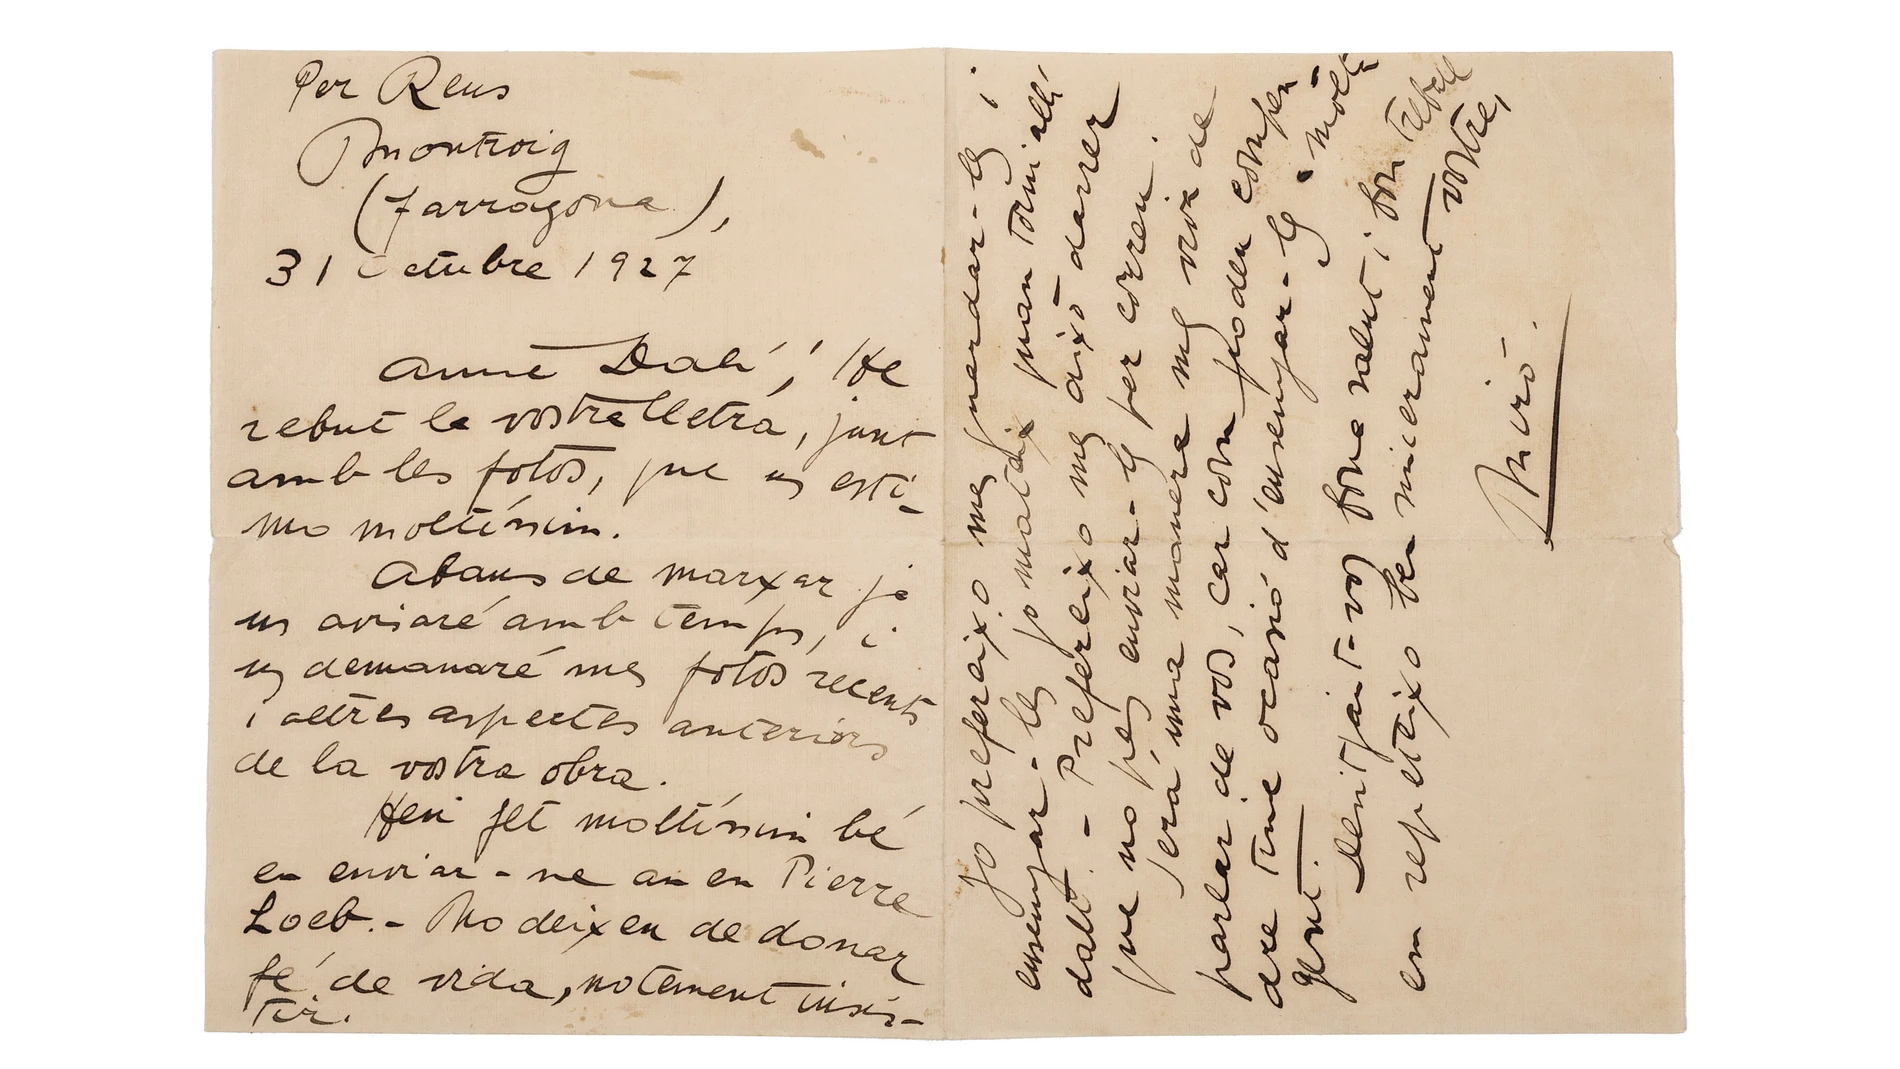 Per Reus
Montroig
(Tarragona),
31 Octubre 1927
Amic Dalí; He
rebut la vostra lletra, junt
amb les fotos, que us esti-
mo moltíssim.
Abans de marxar ja
us avisaré amb temps, i
us demanaré mes fotos recents
i altres aspectes anteriors
de la vostra obra.
Heu fet moltíssim bé
en enviar-ne an en Pierre
Loeb.- No deixeu de donar
fé de vida, notement insis-
tir.
Jo prefereixo mes guardar-les i
ensenyar-les jo mateix quan torni allí
dalt.- Prefereixo mes aixó darrer
que no pas enviar-les per correu.
Será una manera mes viva de
parlar de vos, car com podeu compen
dre tinc ocasió d'ensenyar-les a molta
gent.
Desitjant-vos bona salut i bon treball
em repeteixo ben sincerament vostre,
Miró.